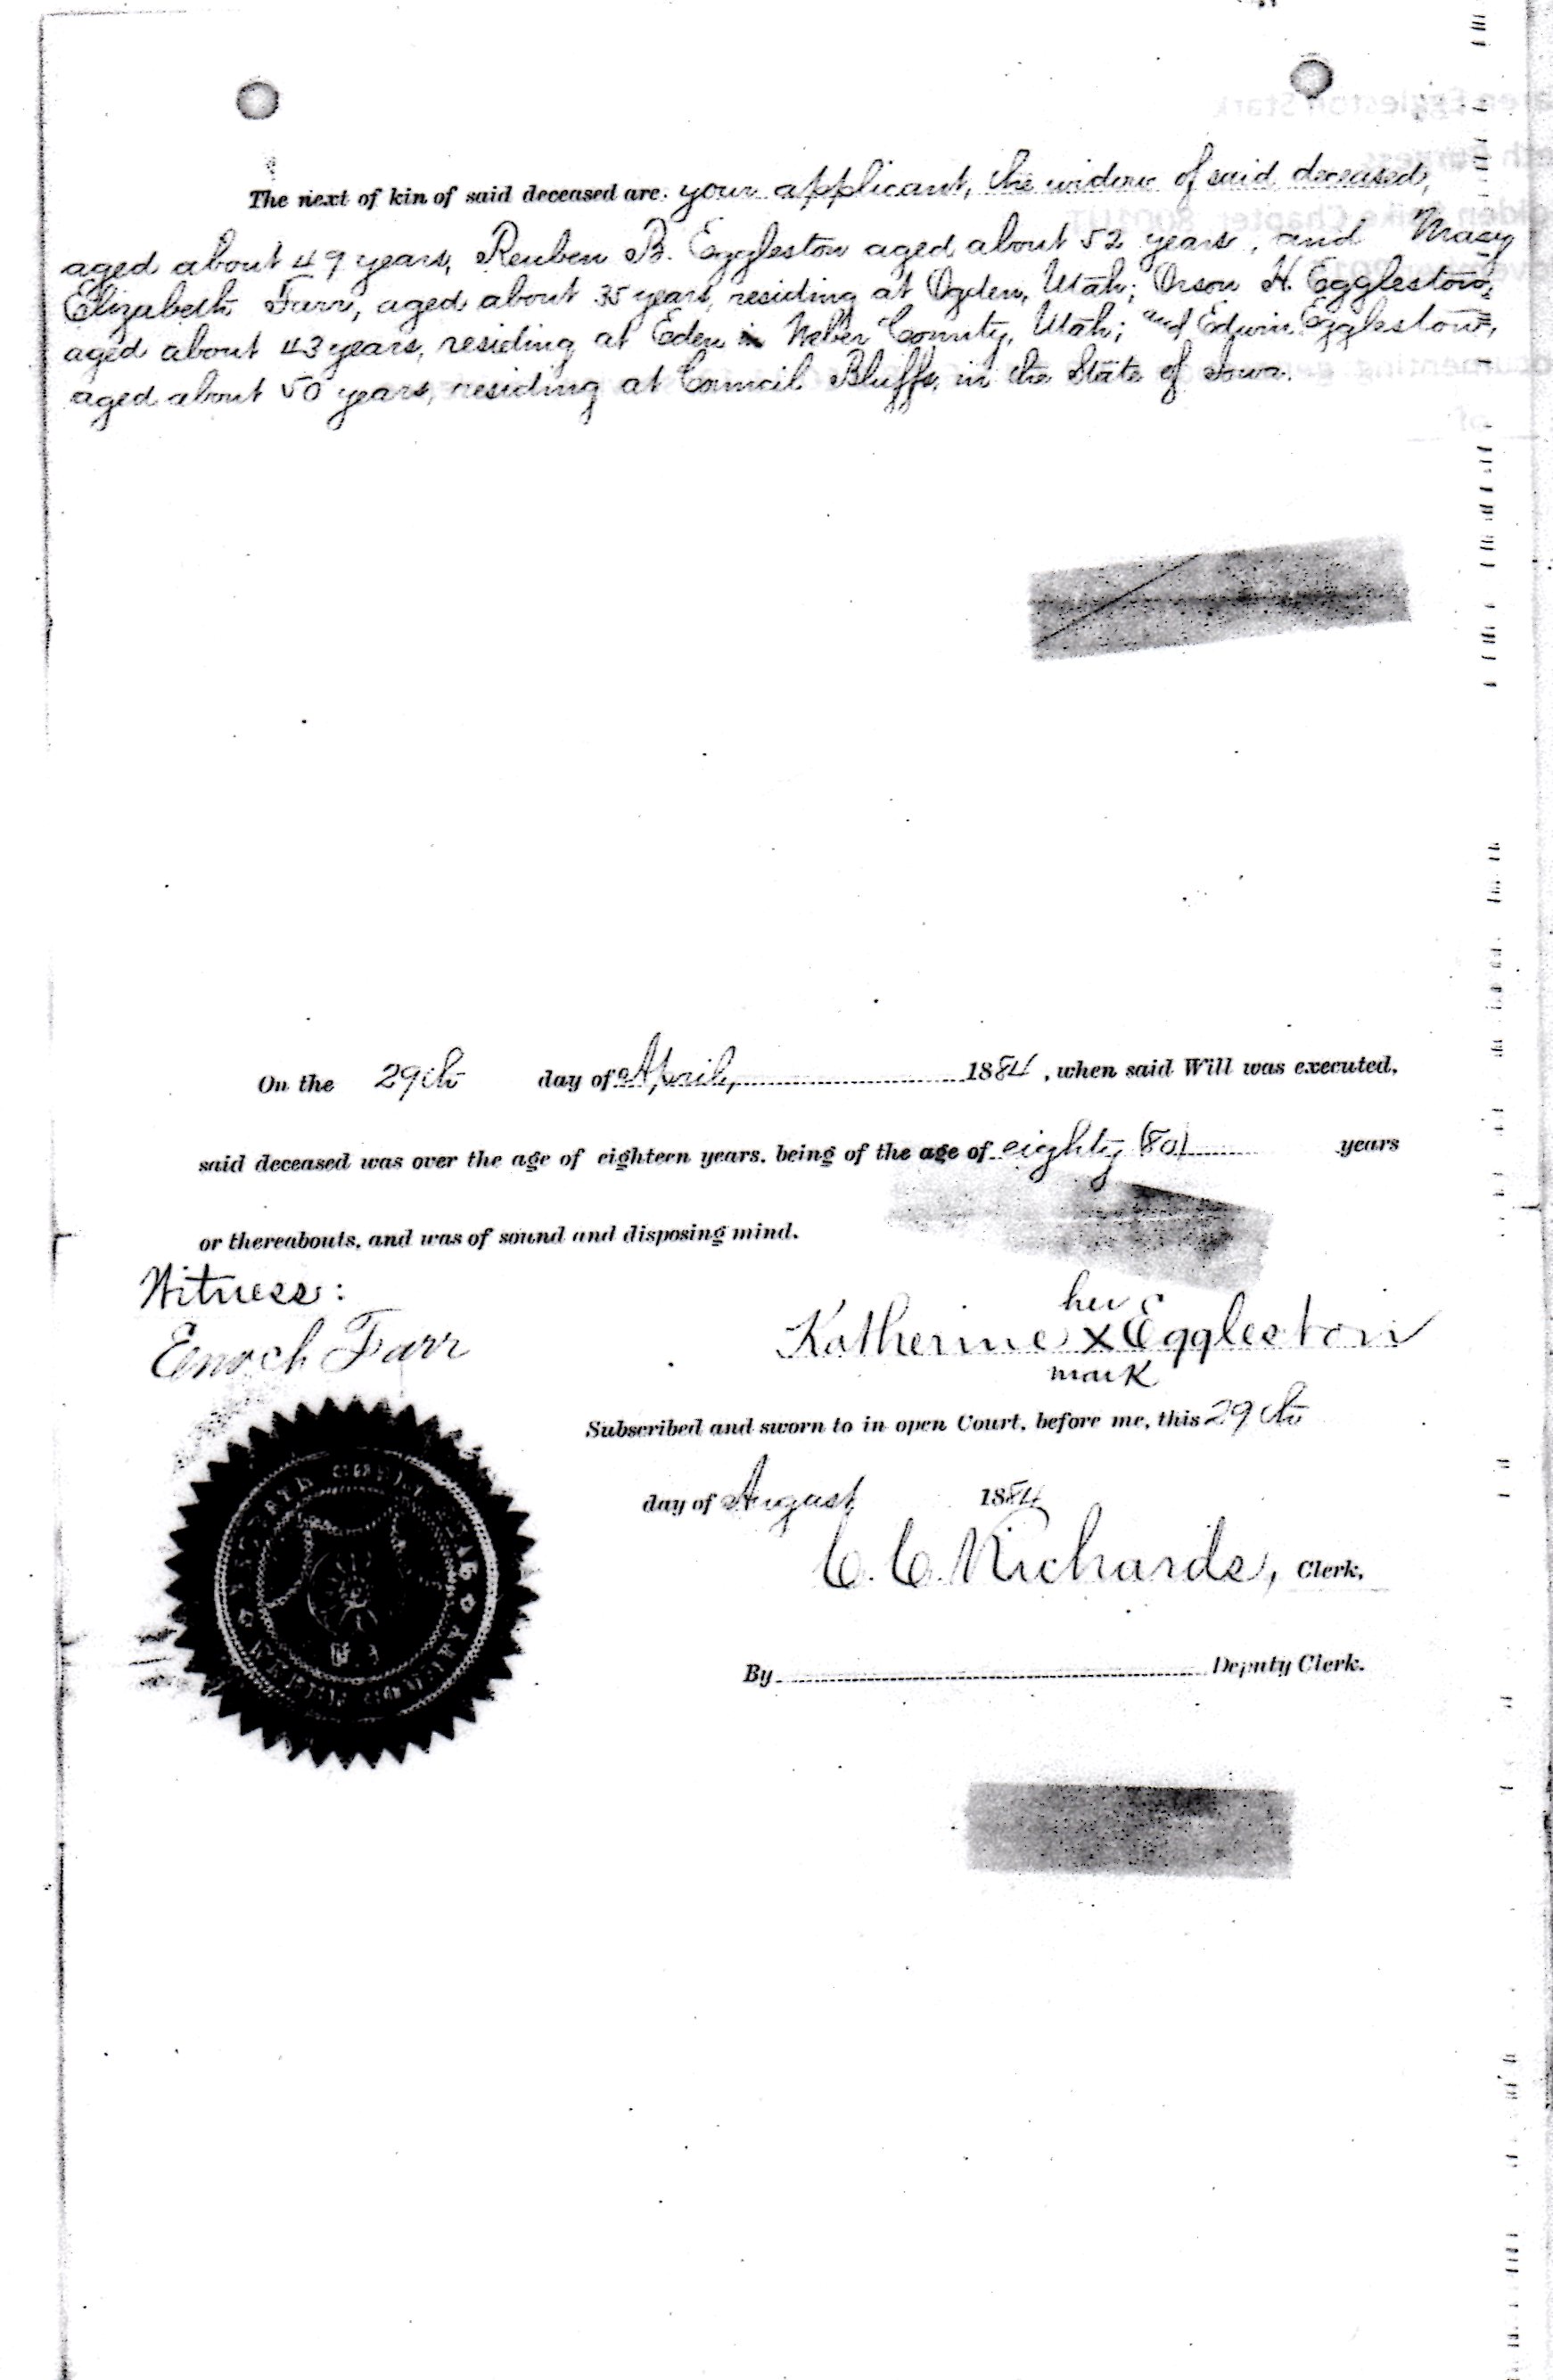 The next of kin of said deceased are. your applicant, the widow of said deceased,
aged about 49 years, Reuben B. Eggleston aged about 52 years, and Mary
Elizabeth Farr, aged about 35 years, residing at Ogden, Utah; Orson H. Eggleston,
aged about 43 years, residing at Eden in Weber County, Utah; and Edwin Eggleston,
aged about 50 years, residing at Council Bluffs, in the State of Iowa.
On the 29th day of April, 1884, when said Will was executed,
said deceased was over the age of eighteen years, being of the age of eighty (80) years
or thereabouts, and was of sound and disposing mind.
Witness:
Enoch Farr
her
Katherine x Eggleston
mark
Subscribed and sworn to in open Court, before me, this 29th
day of August 1884
C. C. Richards, Clerk,
By Deputy Clerk.
PROBATE COURT
WEBER COUNTY